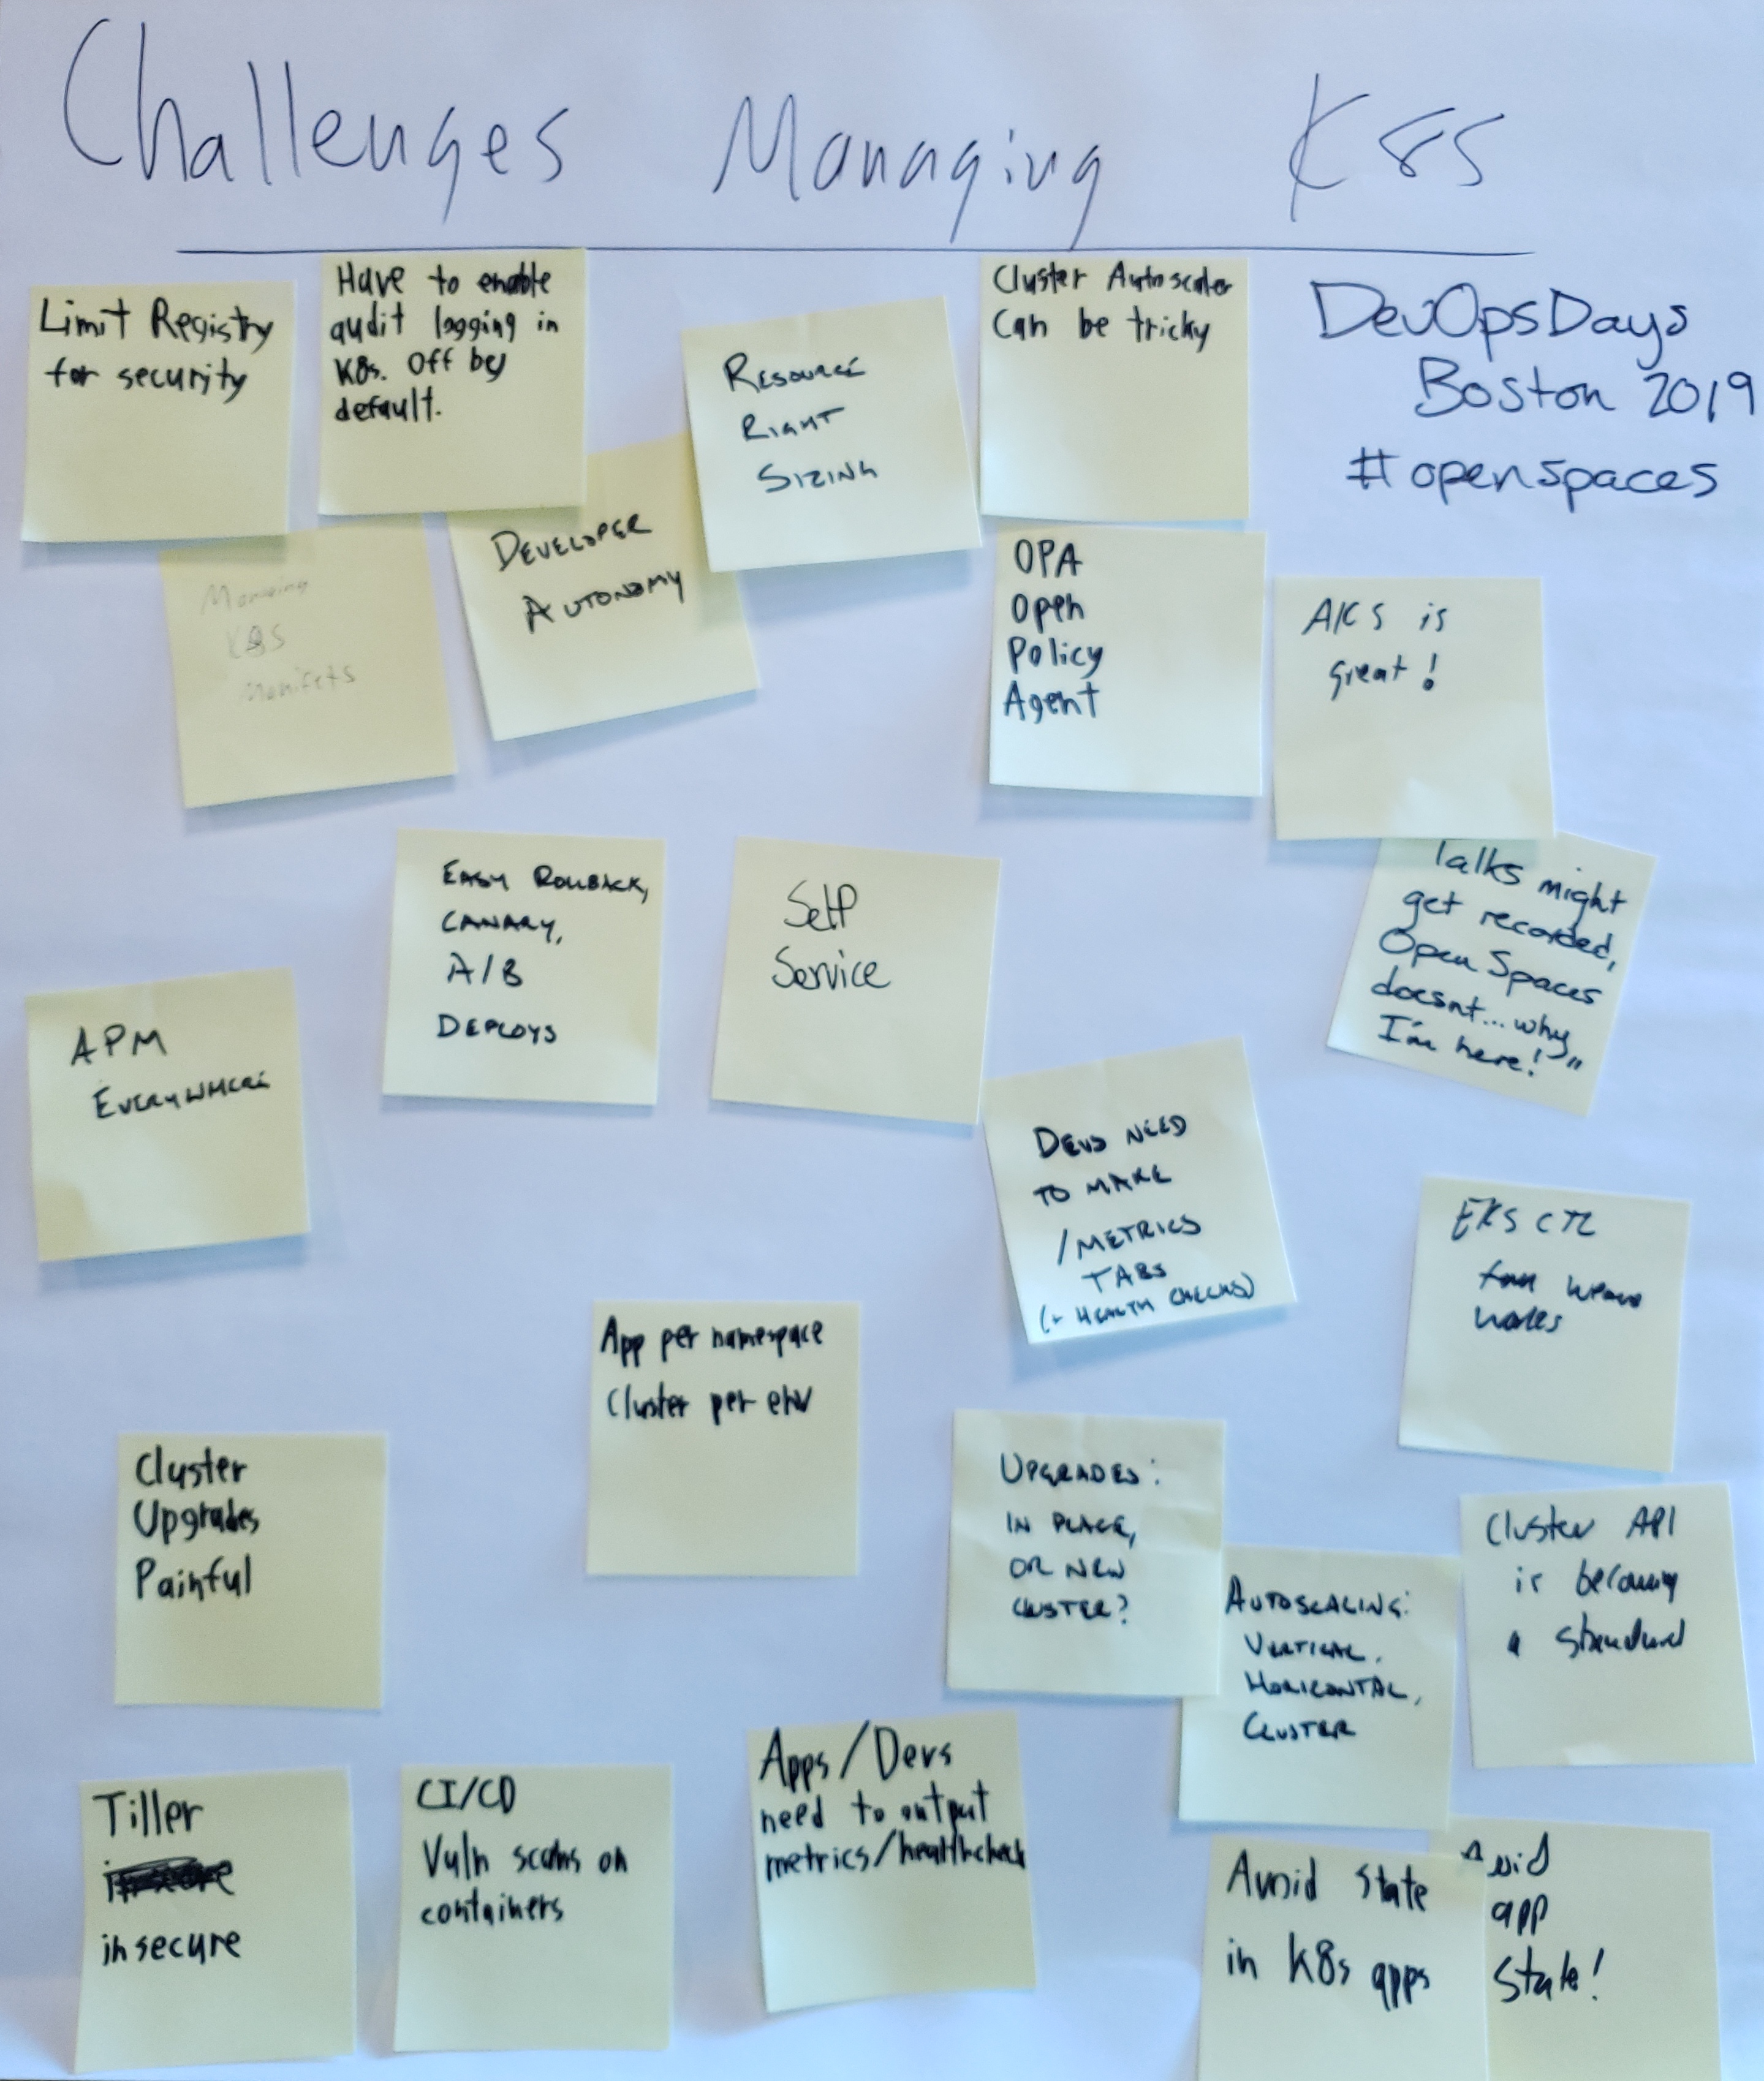 Challenges Managing K8S
Limit Registry
for security
Have to enable
audit logging in
K8s. Off by
default.
RESOURCE
RIGHT
SIZING
Cluster Autoscaler
Can be tricky
DevOpsDays
Boston 2019
#openspaces
Managing
K8S
Manifets
DEVELOPER
AUTONOMY
OPA
Open
Policy
Agent
AKS is
great!
EASY ROLLBACK,
CANARY,
A/B
DEPLOYS
Self
Service
Talks might
get recorded,
Open Spaces
doesnt... why
I'm here!"
APM
EVERYWHERE
DEVS NEED
TO MAKE
/METRICS
TABS
(+ HEALTH CHECKS)
EKS CTL
from weave
works
App per namespace
Cluster per env
Cluster
Upgrades
Painful
UPGRADES:
IN PLACE,
OR NEW
CLUSTER?
AUTOSCALING:
VERTICAL,
HORIZONTAL,
CLUSTER
Cluster API
is becoming
a standard
Tiller
insecure
CI/CD
Vuln scans on
containers
Apps/Devs
need to output
metrics/healthcheck
Avoid state
in k8s apps
Avoid
app
state!